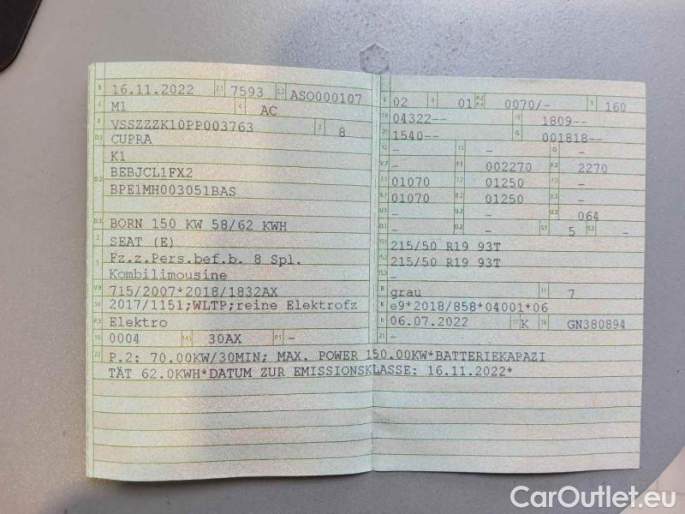 16.11.2022 7593 ASO000107
M1 AC
VSSZZZK10PP003763 8
CUPRA
K1
BEBJCL1FX2
BPE1MH003051BAS
BORN 150 KW 58/62 KWH
SEAT (E)
Fz.z.Pers.bef.b. 8 Spl.
Kombilimousine
715/2007*2018/1832AX
2017/1151;WLTP;reine Elektrofz
Elektro
0004 30AX -
02 01 0070/- 160
04322-- 1809--
1540-- 001818--
- - -
- 002270 2270
01070 01250 -
01070 01250 -
- - 064
- - 5 -
215/50 R19 93T
215/50 R19 93T
-
grau 7
e9*2018/858*04001*06
06.07.2022 K GN380894
-
P.2: 70.00KW/30MIN; MAX. POWER 150.00KW*BATTERIEKAPAZI
TÄT 62.0KWH*DATUM ZUR EMISSIONSKLASSE: 16.11.2022*
CarOutlet.eu